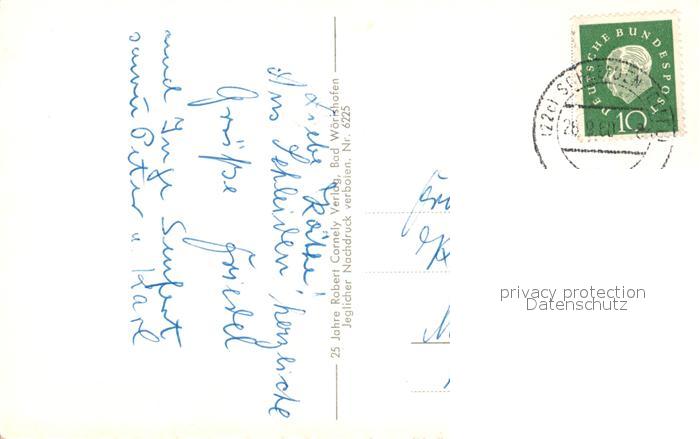 Liebe Käthe!
Aus Schleiden, herzliche
Grüße Friedel
und Inge Seufert
sowie Peter u. Karl
25 Jahre Robert Cornely Verlag, Bad Wörishofen
Jeglicher Nachdruck verboten, Nr. 6225
DEUTSCHE BUNDESPOST
10
(22c) SCHLEIDEN
privacy protection
Datenschutz